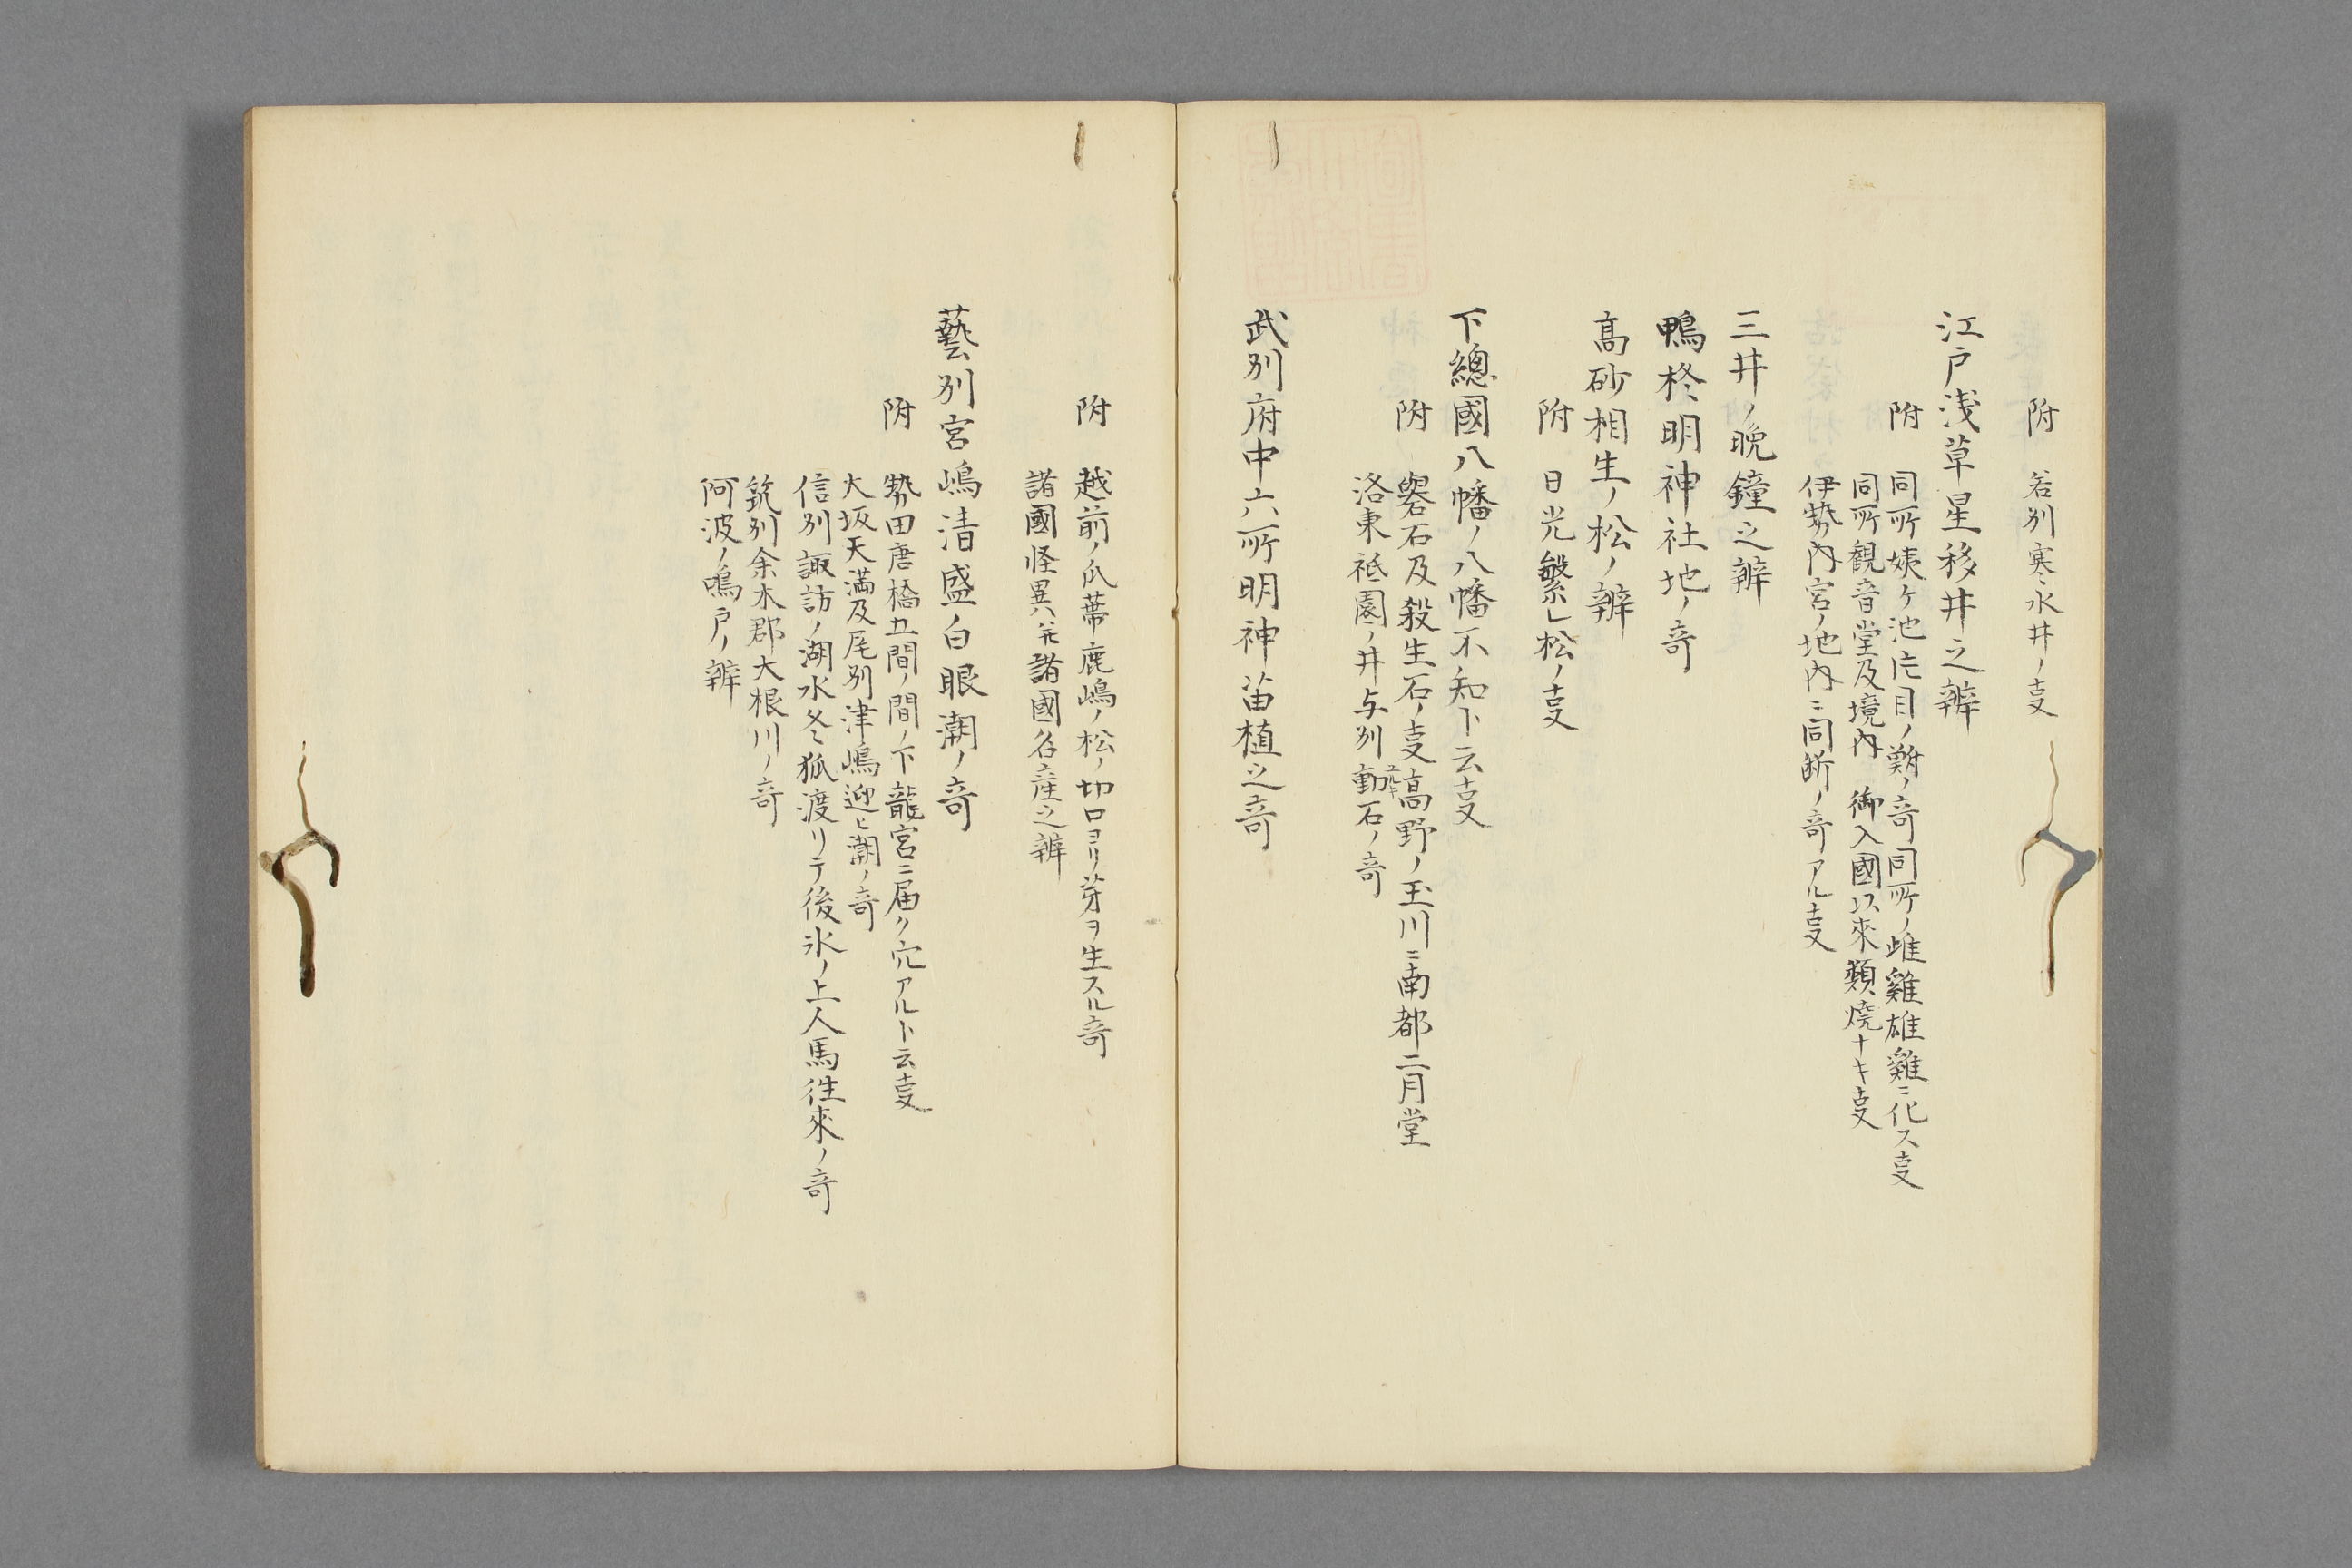 附 若州寒水井ノ叓
江戸浅草星移井之辨
附 同所姨ケ池片目ノ鮒ノ奇同所ノ雌雞雄雞ニ化ス叓
同所觀音堂及境内 御入國以來類燒ナキ叓
伊勢内宮ノ地内ニ同断ノ奇アル叓
三井ノ晩鐘之辨
鴨柊明神社地ノ奇
高砂相生ノ松ノ辨
附 日光繁レ松ノ叓
下總國八幡ノ八幡不知ト云叓
附 礜石及殺生石ノ叓高野ノ玉川ニ南都二月堂
洛東祗園ノ井与州動石ノ奇
武州府中六所明神苗植之奇
附 越前ノ爪蔕鹿嶋ノ松ノ切口ヨリ芽ヲ生スル奇
諸國怪異ハ元諸國名産之辨
藝州宮嶋清盛ノ白眼潮ノ奇
附 勢田唐橋五間ノ間ノ下龍宮ニ届ク穴アルト云叓
大坂天満及尾州津嶋迎ヒ潮ノ奇
信州諏訪ノ湖水冬狐渡リテ後氷ノ上人馬徃來ノ奇
筑州余木郡大根川ノ奇
阿波ノ鳴戸ノ辨